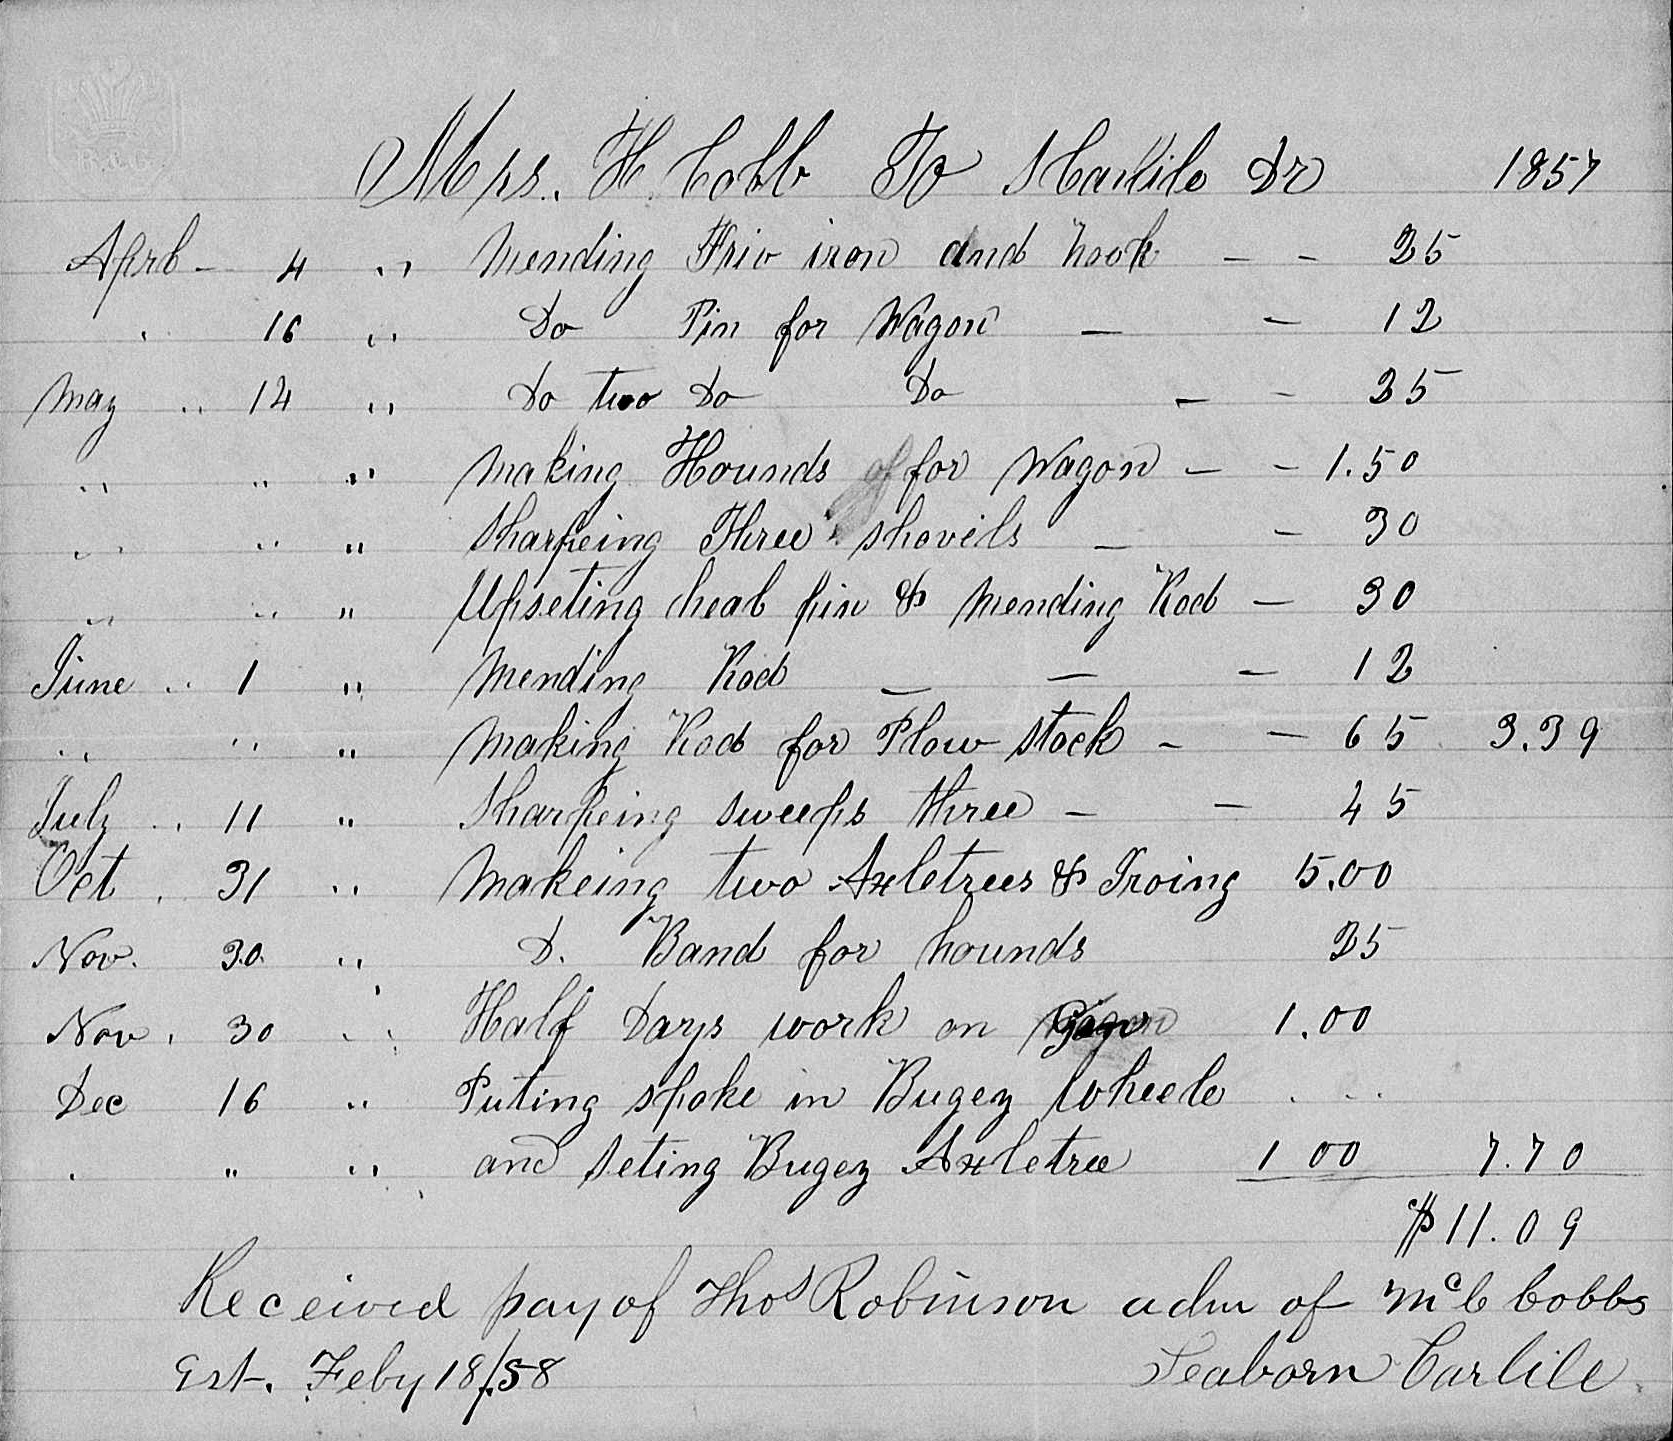 Mrs. H. Cobb To S Carlile Dr 1857
Aprl - 4 " Mending iron and hook - - 25
" 16 " Do Pin for Wagon - - 12
May " 14 " Do two Do Do - - 25
" " " Making Hounds for Wagon - - 1.50
" " " Sharpeing Three shovils - - 30
" " " Upseting heal pin & Mending Rod - 30
June " 1 " Mending Rod - - - 12
" " " Making Rod for Plow stock - - 65 3.39
July " 11 " Sharpeing sweeps three - - 45
Oct . 31 " Makeing two Axletrees & Iroing 5.00
Nov. 30 " D. Band for hounds 25
Nov . 30 " Half Days work on 1.00
Dec 16 " Puting spoke in Bugey Wheele . . .
" " " and seting Bugey Axletree 1 00 7.70
$11.09
Received pay of Thos Robinson adm of McC Cobbs
Est. Feby 18/58 Seaborn Carlile